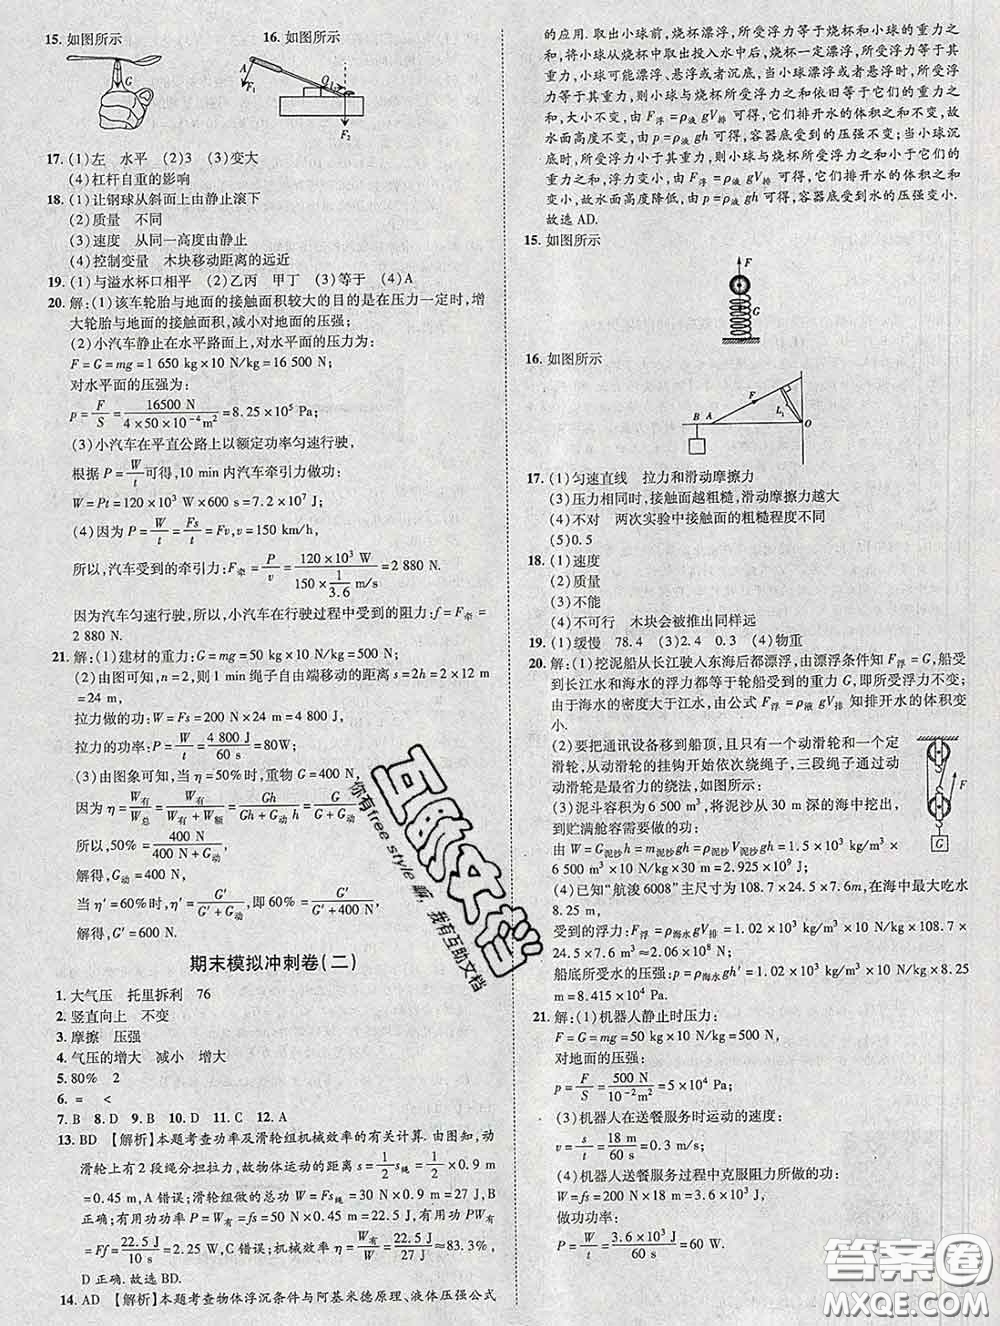 15. 如图所示　16. 如图所示
G
A
F₁
O
L₂
F₂
17. (1)左　水平　(2)3　(3)变大
(4)杠杆自重的影响
18. (1)让钢球从斜面上由静止滚下
(2)质量　不同
(3)速度　从同一高度由静止
(4)控制变量　木块移动距离的远近
19. (1)与溢水杯口相平　(2)乙丙　甲丁　(3)等于　(4)A
20. 解:(1)该车轮胎与地面的接触面积较大的目的是在压力一定时,增
大轮胎与地面的接触面积,减小对地面的压强;
(2)小汽车静止在水平路面上,对水平面的压力为:
F=G=mg=1 650 kg×10 N/kg=16 500 N;
对水平面的压强为:
p=F/S=16500 N/(4×50×10⁻⁴m²)=8.25×10⁵ Pa;
(3)小汽车在平直公路上以额定功率匀速行驶,
根据 P=W/t可得,10 min内汽车牵引力做功:
W=Pt=120×10³ W×600 s=7.2×10⁷ J;
(4)因为 P=W/t=Fs/t=Fv,v=150 km/h,
所以,汽车受到的牵引力:F牵=P/v=120×10³ W/(150×1/3.6 m/s)=2 880 N.
因为汽车匀速行驶,所以,小汽车在行驶过程中受到的阻力:f=F牵=
2 880 N.
21. 解:(1)建材的重力:G=mg=50 kg×10 N/kg=500 N;
(2)由图可知,n=2,则1 min绳子自由端移动的距离s=2h=2×12 m
=24 m,
拉力做的功:W=Fs=200 N×24 m=4 800 J,
拉力的功率:P=W/t=4 800 J/60 s=80W;
(3)由图象可知,当η=50%时,重物G=400 N;
因为η=W有/W总=W有/(W有+W额)=Gh/(Gh+G动h)=G/(G+G动)
所以,50%=400 N/(400 N+G动),
解得,G动=400 N,
当η′=60%时,η′=G′/(G′+G动),即60%=G′/(G′+400 N),
解得:G′=600 N.
期末模拟冲刺卷(二)
1. 大气压　托里拆利　76
2. 竖直向上　不变
3. 摩擦　压强
4. 气压的增大　减小　增大
5. 80%　2
6. =　<
7. B 8. D 9. B 10. D 11. C 12. A
13. BD　【解析】本题考查功率及滑轮组机械效率的有关计算. 由图知,动
滑轮上有2段绳分担拉力,故物体运动的距离s=1/2s绳=1/2×0.9 m
=0.45 m,A错误;滑轮组做的总功W=Fs绳=30 N×0.9 m=27 J,B
正确;有用功功率P=W有=fs=50 N×0.45 m=22.5 J,有用功PW有
=Ff=22.5 J/10 s=2.25 W,C错误;机械效率η=W有/W=22.5 J/27 J≈83.3%,
D正确. 故选BD.
14. AD　【解析】本题考查物体浮沉条件与阿基米德原理、液体压强公式
的应用. 取出小球前,烧杯漂浮,所受浮力等于其重力,取出小球之
和,将小球从烧杯中取出投入水中后,烧杯一定漂浮,所受浮力等于其
重力,小球可能漂浮、悬浮或者沉底,当小球漂浮或者悬浮时,所受浮
力等于其重力,则小球与烧杯所受浮力之和依旧等于它们的重力之
和,大小不变,由F浮=ρ液gV排可得,它们排开水的体积之和不变,故
水面高度不变,由p=ρ液gh可得,容器底受到的压强不变;当小球沉
底时,所受浮力小于其重力,则小球与烧杯所受浮力之和小于它们的重
力之和,浮力变小,由F浮=ρ液gV排可得,它们排开水的体积之和变
小,故水面高度降低,由p=ρ液gh可得,容器底受到水的压强变小.
故选AD.
15. 如图所示
F
G
16. 如图所示
F
B A
L₁
O
17. (1)匀速直线　拉力和滑动摩擦力
(3)压力相同时,接触面越粗糙,滑动摩擦力越大
(4)不对　两次实验中接触面的粗糙程度不同
(5)0.5
18. (1)速度
(2)质量
(3)不能
(4)不可行　木块会被推出同样远
19. (1)缓慢　78.4　(3)2.4　0.3　(4)物重
20. 解:(1)挖泥船从长江驶入东海后都漂浮,由漂浮条件知F浮=G,船受
到长江水和海水的浮力都等于轮船受到的重力G,即所受浮力不变;
由于海水的密度大于江水,由公式F浮=ρ液gV排知排开水的体积变
小.
(2)要把通讯设备移到船顶,且只有一个动滑轮和一个定
滑轮,从动滑轮的挂钩开始依次绕绳子,三段绳子通过动
滑轮是最省力的绕法,如图所示:
F
G
(3)泥斗容积为6 500 m³,将泥沙从30 m深的海中挖出,
到贮满舱容需要做的功:
由W=G泥沙h=m泥沙gh=ρ泥沙V泥沙gh=1.5×10³ kg/m³
×6 500 m³×10 N/kg×30 m=2.925×10⁹ J.
(4)已知“航浚6008”主尺寸为108.7×24.5×7.6m,在海中最大吃水
8.25 m,
受到的浮力:F浮=ρ海水gV排=1.02×10³ kg/m³×10 N/kg×108.7×
24.5×8.25 m³=2.241×10⁸ N,
船底所受水的压强:p=ρ海水gh′=1.02×10³ kg/m³×10 N/kg×
8.25 m=8.415×10⁴ Pa.
21. 解:(1)机器人静止时压力:
F=G=mg=50 kg×10 N/kg=500 N,
对地面的压强:
p=F/S=500 N/10⁻²m²=5×10⁴ Pa;
(3)机器人在送餐服务时运动的速度:
v=s/t=18 m/60 s=0.3 m/s;
(4)机器人送餐服务过程中克服阻力所做的功:
W=fs=200 N×18 m=3.6×10³ J,
做功功率:
P=W/t=3.6×10³ J/60 s=60 W.
互助文档
你有free style嘛，我有互助文档
答案圈
MXQE.COM